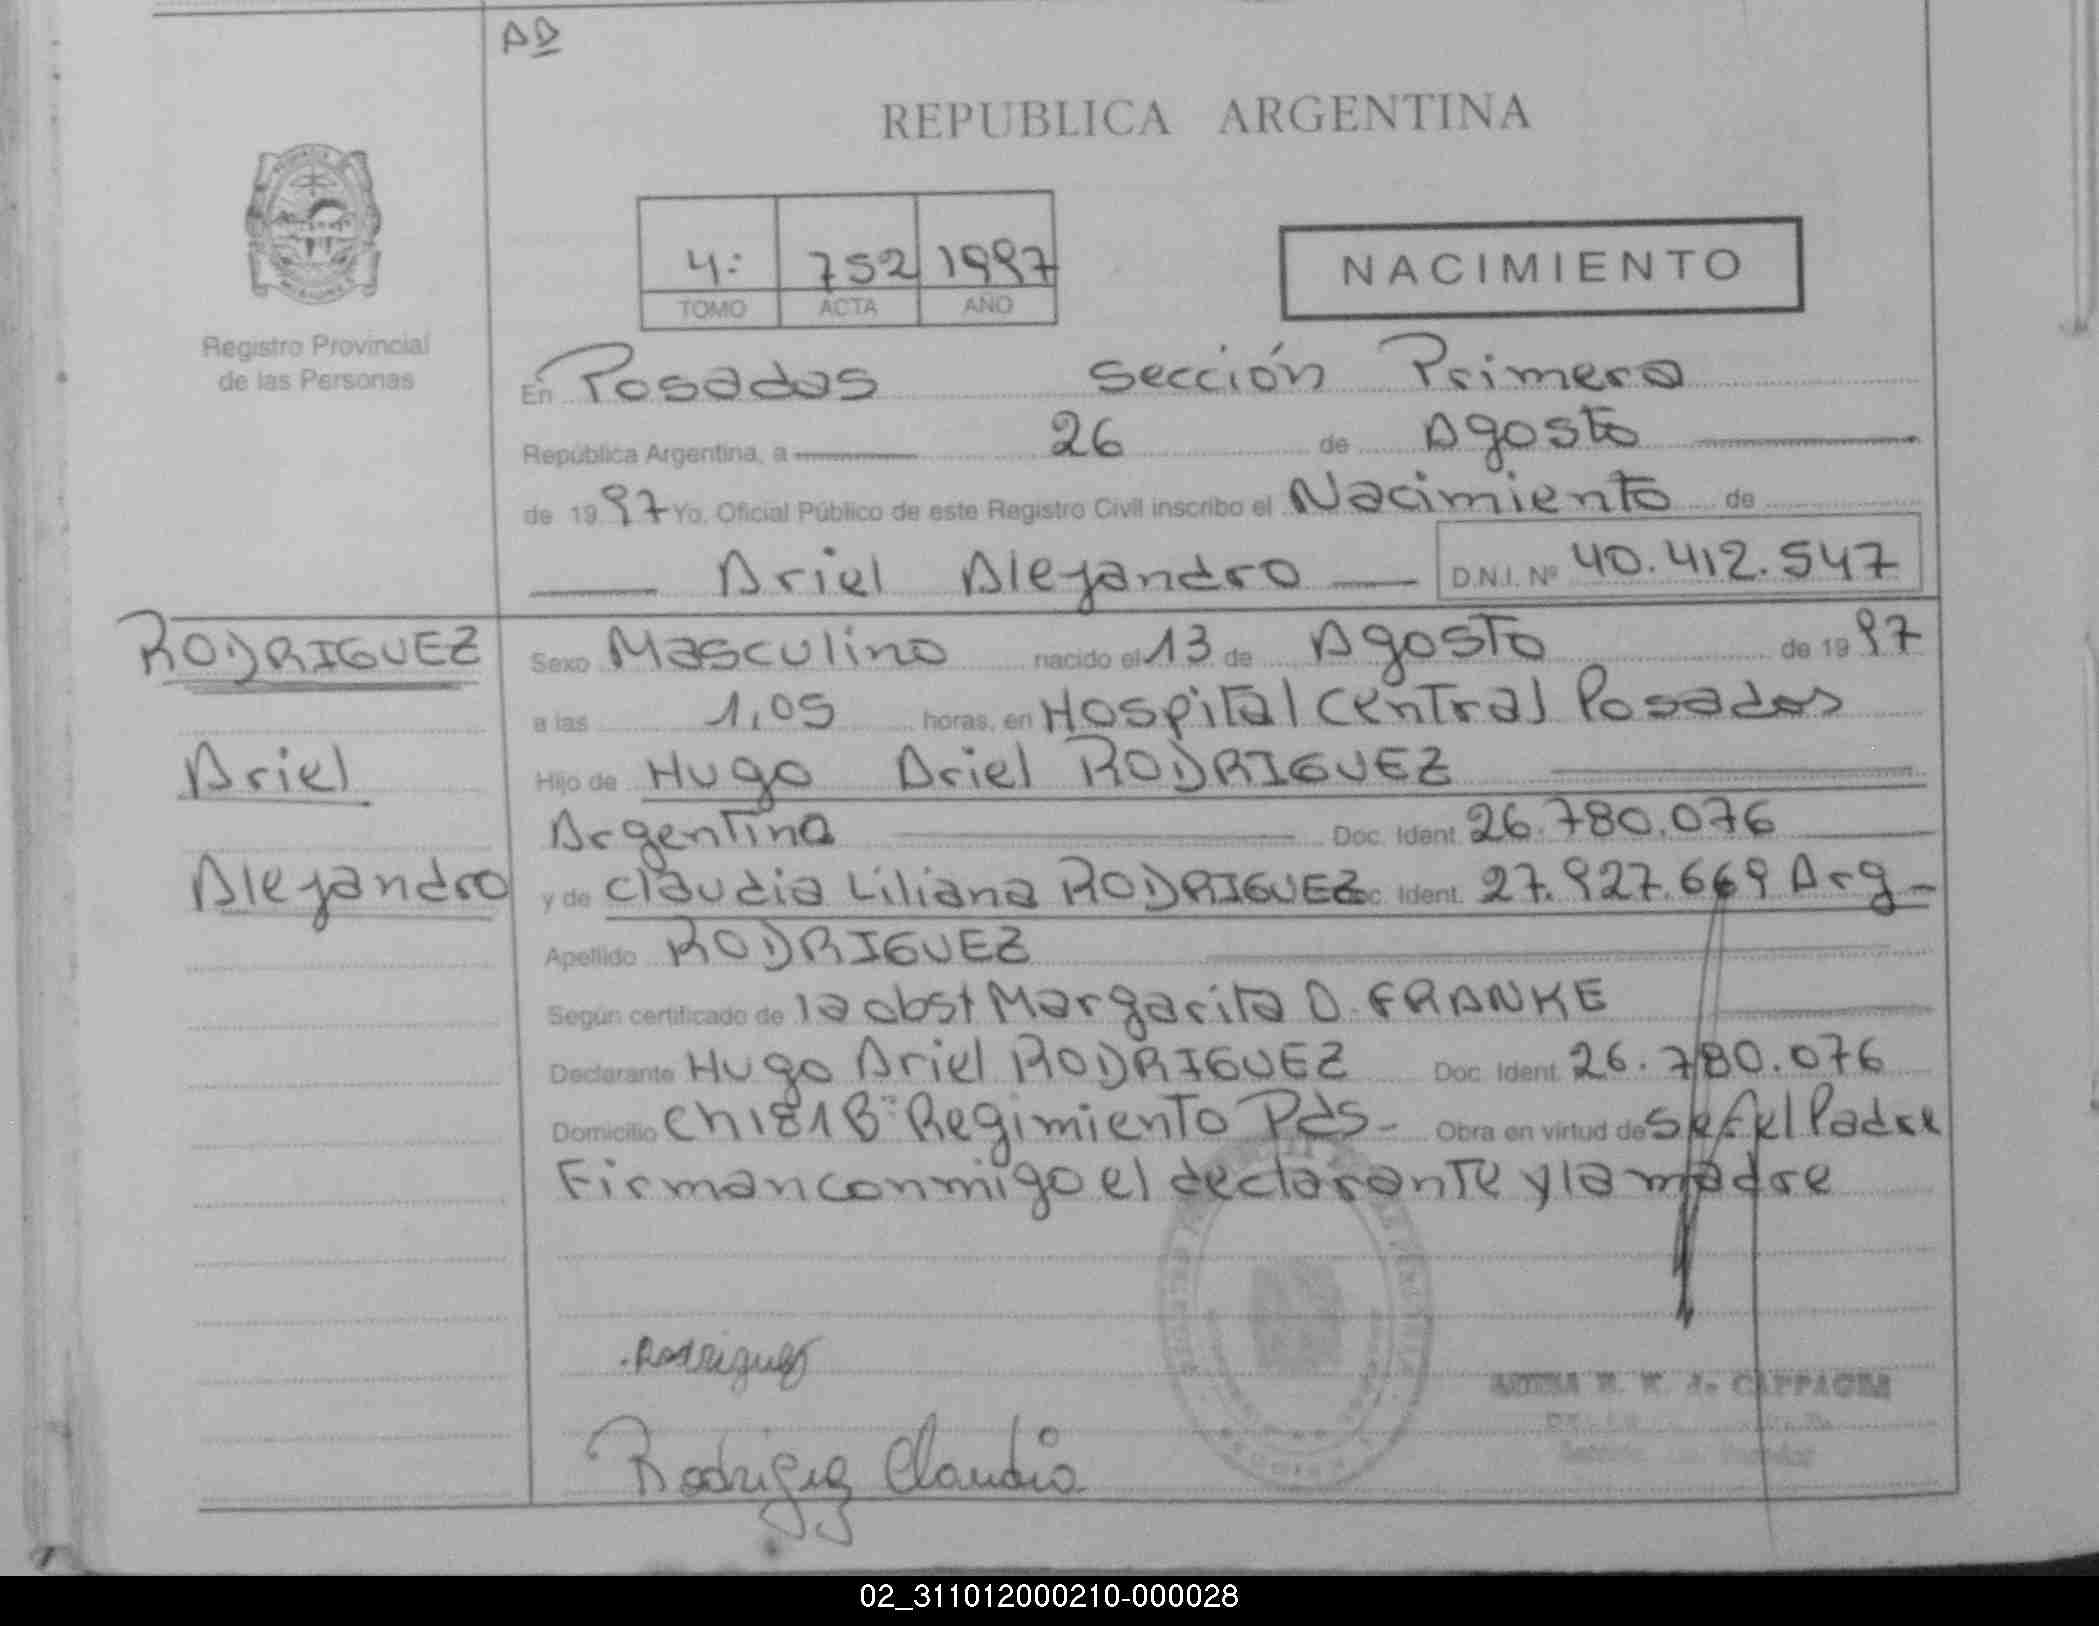 AD
REPUBLICA ARGENTINA
4: 752 1997
TOMO ACTA AÑO
NACIMIENTO
Registro Provincial
de las Personas
En Posadas sección Primera
República Argentina, a 26 de Agosto
de 1997 Yo, Oficial Público de este Registro Civil inscribo el Nacimiento de
Ariel Alejandro D.N.I. Nº 40.412.547
RODRIGUEZ
Ariel
Alejandro
Sexo Masculino nacido el 13 de Agosto de 1997
a las 1,05 horas, en Hospital Central Posadas
Hijo de Hugo Ariel RODRIGUEZ
Argentina Doc. Ident. 26.780.076
y de Claudia Liliana RODRIGUEZ Doc. Ident. 27.927.669 Arg-
Apellido RODRIGUEZ
Según certificado de la obst Margarita D. FRANKE
Declarante Hugo Ariel RODRIGUEZ Doc. Ident. 26.780.076
Domicilio Ch 181 Bº Regimiento Pds- Obra en virtud de Ser el Padre
Firman conmigo el declarante y la madre
Rodriguez
Rodriguez Claudia
02_311012000210-000028